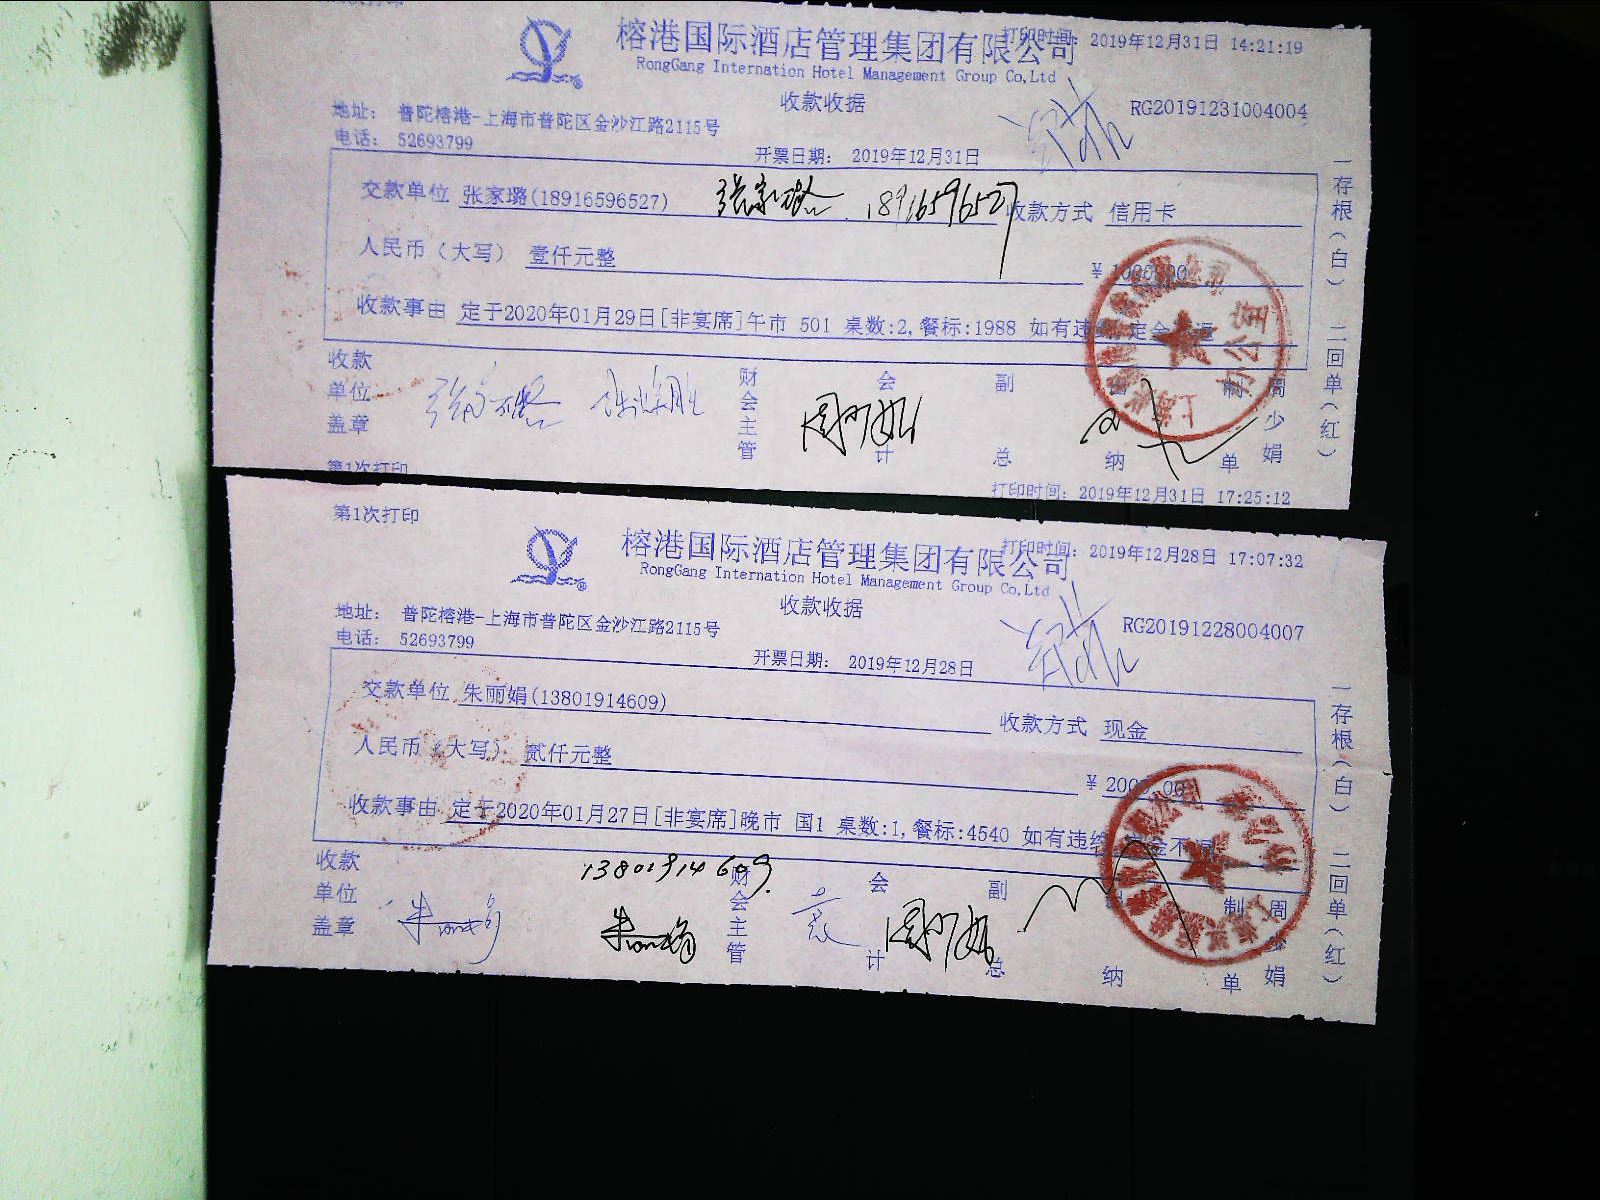 榕港国际酒店管理集团有限公司
打印时间: 2019年12月31日 14:21:19
RongGang Internation Hotel Management Group Co,Ltd
收款收据
RG20191231004004
地址: 普陀榕港-上海市普陀区金沙江路2115号
电话: 52693799
开票日期: 2019年12月31日
交款单位 张家璐(18916596527) 张家璐 18916596527 收款方式 信用卡
人民币(大写) 壹仟元整
¥ 1000.00
收款事由 定于2020年01月29日[非宴席]午市 501 桌数:2,餐标:1988 如有违约,定金不退
收款单位盖章
财会主管
会计
副总
出纳
制单
周少娟
一存根(白) 二回单(红)
第1次打印
打印时间: 2019年12月31日 17:25:12
第1次打印
榕港国际酒店管理集团有限公司
打印时间: 2019年12月28日 17:07:32
RongGang Internation Hotel Management Group Co,Ltd
收款收据
RG20191228004007
地址: 普陀榕港-上海市普陀区金沙江路2115号
电话: 52693799
开票日期: 2019年12月28日
交款单位 朱丽娟(13801914609)
收款方式 现金
人民币(大写) 贰仟元整
¥ 2000.00
收款事由 定于2020年01月27日[非宴席]晚市 国1 桌数:1,餐标:4540 如有违约,定金不退
13801914609
收款单位盖章
财会主管
会计
副总
纳
制单
周少娟
一存根(白) 二回单(红)